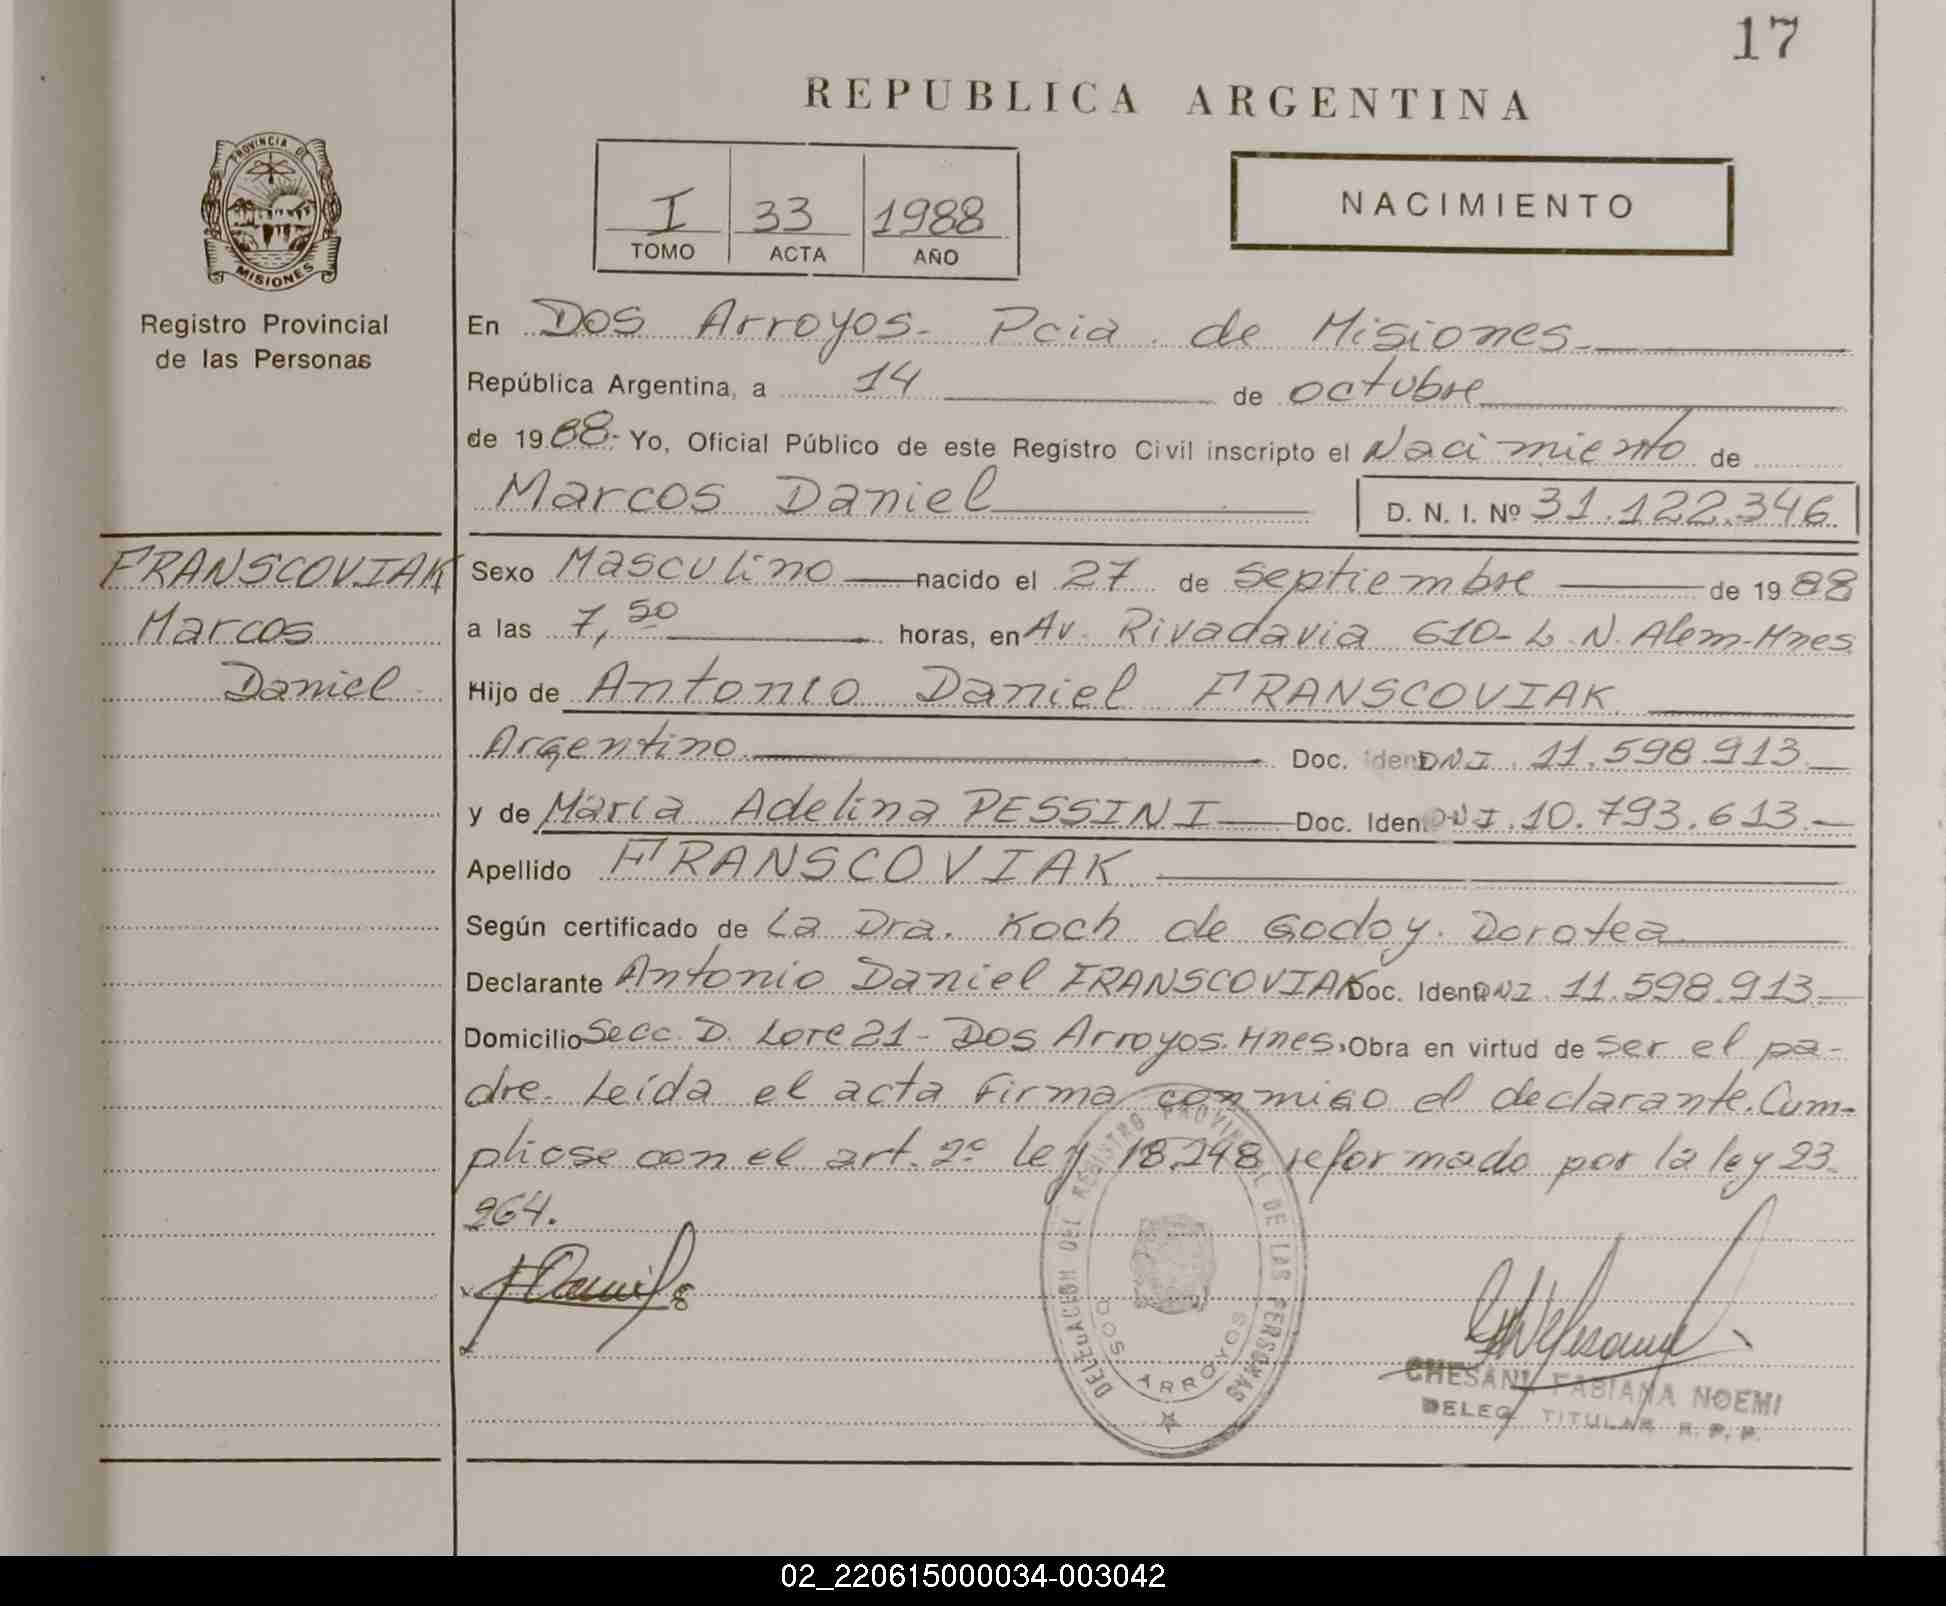 17
REPUBLICA ARGENTINA
PROVINCIA DE
MISIONES
Registro Provincial
de las Personas
I 33 1988
TOMO ACTA AÑO
NACIMIENTO
En Dos Arroyos- Pcia. de Misiones.
República Argentina, a 14 de octubre
de 1988- Yo, Oficial Público de este Registro Civil inscripto el Nacimiento de
Marcos Daniel D. N. I. Nº 31.122.346
FRANSCOVIAK
Marcos
Daniel
Sexo Masculino nacido el 27 de Septiembre de 1988
a las 7,50 horas, en Av. Rivadavia 610- L. N. Alem-Mnes
Hijo de Antonio Daniel FRANSCOVIAK
Argentino Doc. Iden DNI. 11.598.913.
y de María Adelina PESSINI Doc. Iden. DNI. 10.793.613.
Apellido FRANSCOVIAK
Según certificado de La Dra. Koch de Godoy. Dorotea
Declarante Antonio Daniel FRANSCOVIAK Doc. Iden DNI. 11.598.913.
Domicilio Secc. D. Lote 21- Dos Arroyos. Mnes, Obra en virtud de ser el pa-
dre. Leída el acta firma conmigo el declarante. Cum-
pliose con el art. 2º ley 18.248 reformado por la ley 23.
264.
DELEGACION DEL REGISTRO PROVINCIAL DE LAS PERSONAS
DOS ARROYOS
CHESANI FABIANA NOEMI
DELEG. TITULAR R. P. P.
02_220615000034-003042